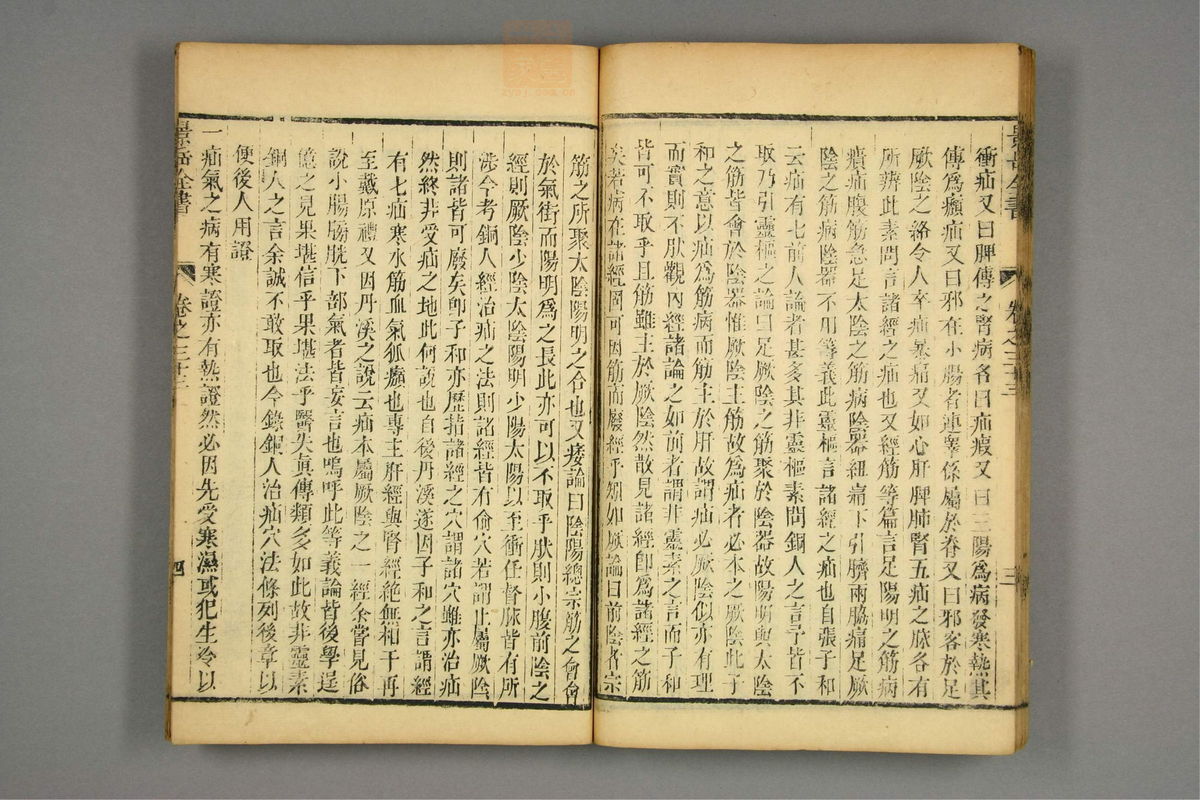 景岳全書 卷之三十三 三
衝疝又曰脾傳之腎病名曰疝瘕又曰三陽爲病發寒熱其
傳爲癲疝又曰邪在小腸者連睾係屬於脊又曰邪客於足
厥陰之絡令人卒疝暴痛又如心肝脾肺腎五疝之脉各有
所辨此素問言諸經之疝也又經筋等篇言足陽明之筋病
㿉疝腹筋急足太陰之筋病陰器紐痛下引臍兩脇痛足厥
陰之筋病陰器不用等義此靈樞言諸經之疝也自張子和
云疝有七前人論者甚多其非靈樞素問銅人之言予皆不
取乃引靈樞之論曰足厥陰之筋聚於陰器故陽明與太陰
之筋皆會於陰器惟厥陰主筋故爲疝者必本之厥陰此子
和之意以疝爲筋病而筋主於肝故謂疝必厥陰似亦有理
而實則不肰觀內經諸論之如前者謂非靈素之言而子和
皆可不取乎且筋雖主於厥陰然散見諸經卽爲諸經之筋
矣若病在諸經固可因筋而廢經乎矧如厥論曰前陰者宗
筋之所聚太陰陽明之合也又痿論曰陰陽總宗筋之會會
於氣街而陽明爲之長此亦可以不取乎肰則小腹前陰之
經則厥陰少陰太陰陽明少陽太陽以至衝任督脉皆有所
涉今考銅人經治疝之法則諸經皆有俞穴若謂止屬厥陰
則諸皆可廢矣卽子和亦歷指諸經之穴謂諸穴雖亦治疝
然終非受疝之地此何說也自後丹溪遂因子和之言謂經
有七疝寒水筋血氣狐癩也專主肝經與腎經絶無相干再
至戴原禮又因丹溪之說云疝本屬厥陰之一經余嘗見俗
說小腸膀胱下部氣者皆妄言也嗚呼此等義論皆後學逞
億之見果堪信乎果堪法乎醫失眞傳類多如此故非靈素
銅人之言余誠不敢取也今錄銅人治疝穴法條列後章以
便後人用證
一疝氣之病有寒證亦有熱證然必因先受寒濕或犯生冷以
景岳全書 卷之三十三 四